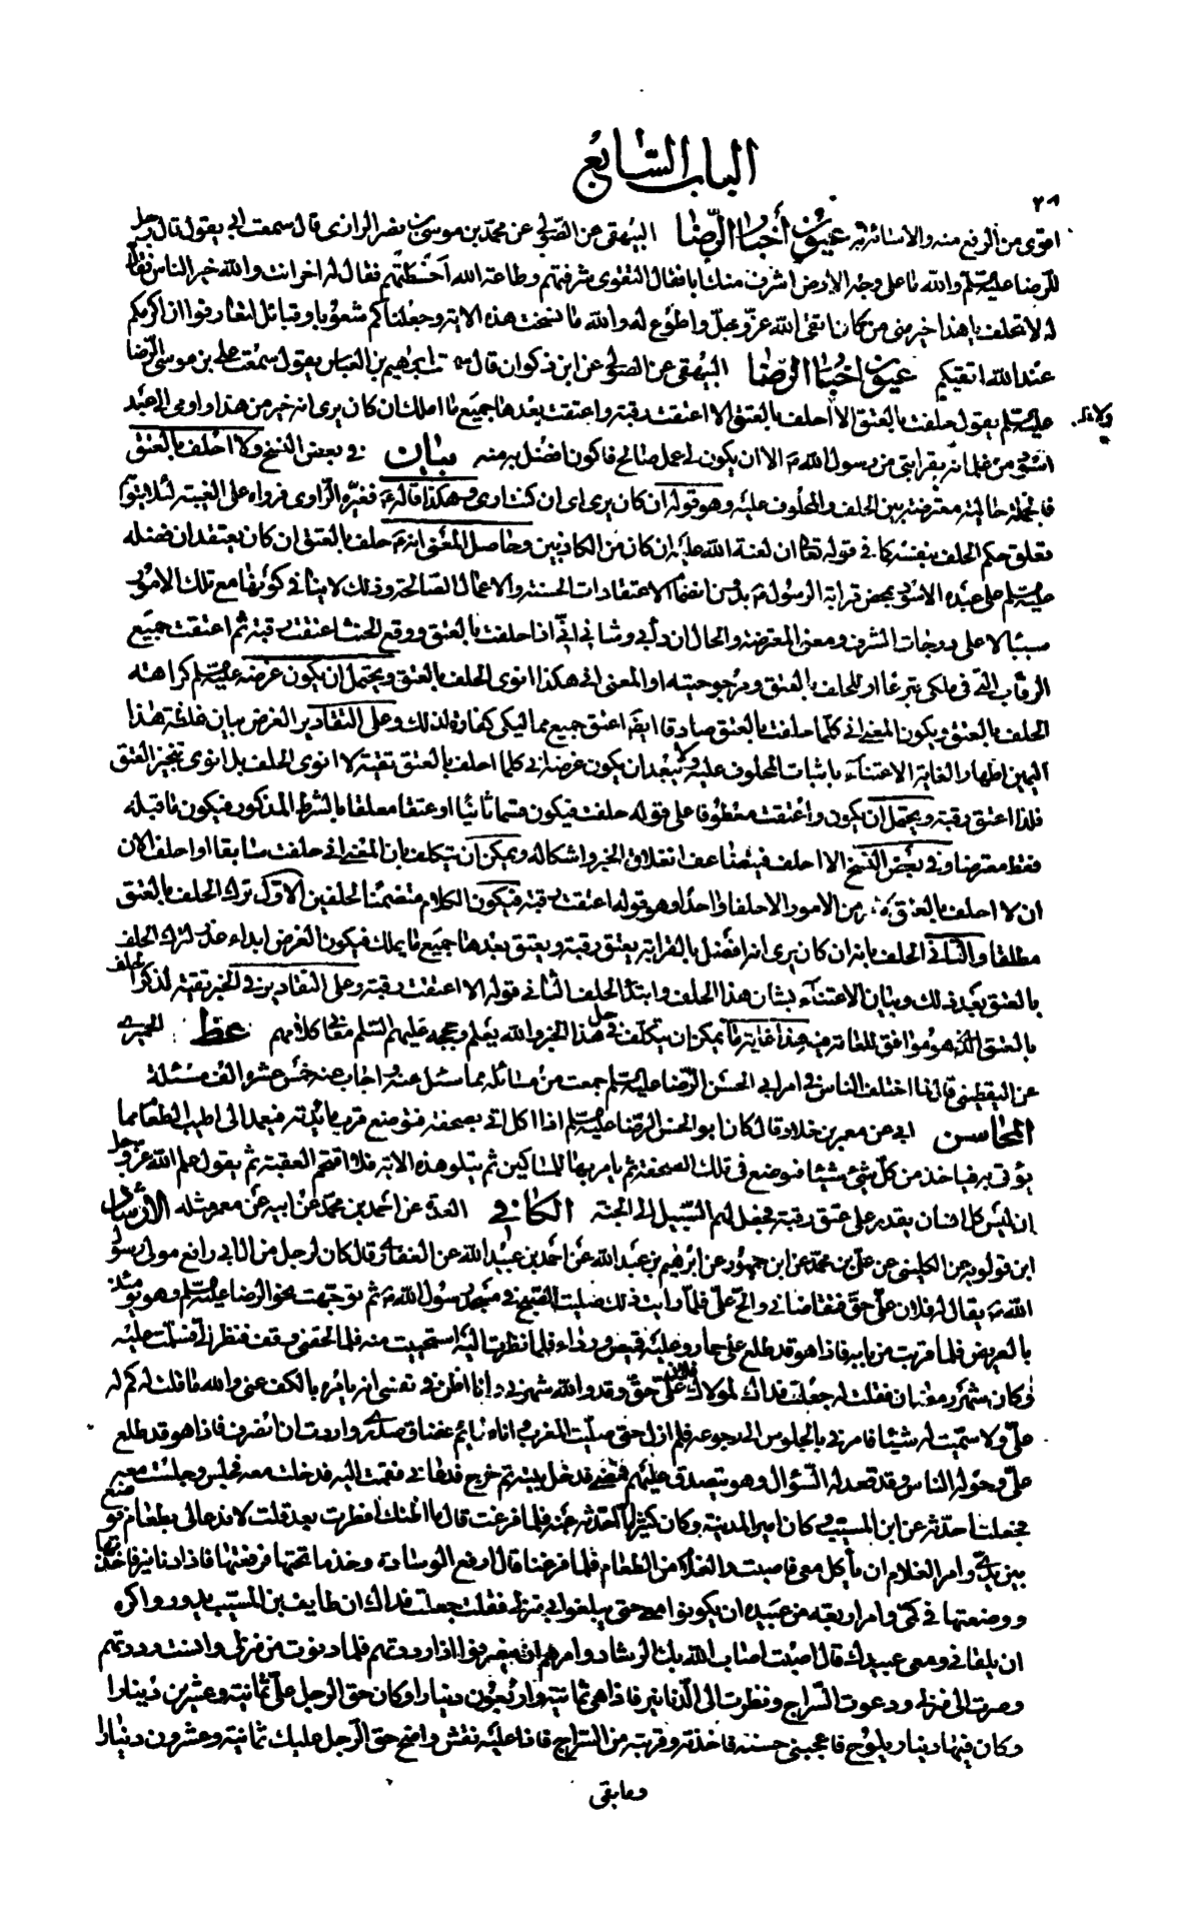 الباب السّابع
٢٨
اقوى من الرفع منه والاستاثر به عيون أخبار الرّضا البيهقى عن الصّولى عن محمّد بن موسى بن نصر الرازى قال سمعت ابى يقول قال رجل
للرضا عليه السّلم والله ما على وجه الارض اشرف منك ابا فقال التقوى شرفتهم وطاعة الله احظتهم فقال له اخر انت والله خير الناس فقال
له لا تحلف يا هذا خير منى من كان اتقى الله عزّ وجلّ واطوع له والله ما نسخت هذه الاية وجعلناكم شعوبا وقبائل لتعارفوا ان اكرمكم
عند الله اتقيكم عيون اخبار الرضا البيهقى عن الصولى عن ابن ذكوان قال سمعت ابراهيم بن العباس يقول سمعت على بن موسى الرّضا
عليه السّلم يقول حلفت بالعتق الا احلف بالعتق الا اعتقت رقبة واعتقت بعدها جميع ما املك ان كان يرى انه خير من هذا واومى الى عبد
اسود من غلمانه بقرابتى من رسول الله ص الا ان يكون لى عمل صالح فاكون افضل به منه بيان فى بعض النسخ ولا احلف بالعتق
فالجملة حالية معترضة بين الحلف والمحلوف عليه وهو قوله ان كان يرى اى ان كنت ارى وهكذا قاله ع فغيّره الرّاوى فرواه على الغيبة لئلا يتوهم
تعلق حكم الحلف بنفسه كما فى قوله تعالى ان لعنة الله عليه ان كان من الكاذبين وحاصل المعنى انه ع حلف بالعتق ان كان يعتقد ان فضله
عليه السّلم على عبده الاسود بمحض قرابة الرسول ص بدون انضمام الاعتقادات الحسنة والاعمال الصّالحة وذلك لا ينافى كونها مع تلك الامور
سببا لاعلى درجات الشرف ومعنى المعترضة والحال ان دأبى وشانى انّى اذا حلفت بالعتق ووقع الحنث اعتقت رقبة ثم اعتقت جميع
الرقاب التى فى ملكى تبرعا او للحلف بالعتق ومرجوحيته او المعنى انى هكذا انوى الحلف بالعتق ويحتمل ان يكون غرضه عليه السّلم كراهته
الحلف بالعتق ويكون المعنى انى كلما حلفت بالعتق صادقا ايضا اعتق جميع مماليكى كفارة لذلك وعلى التقادير الغرض بيان غلظة هذا
اليمين اظهارا لغاية الاعتناء باثبات المحلوف عليه ولا يبعد ان يكون غرضه انى كلما احلف بالعتق تقية لا انوى الحلف بل انوى تنجيز العتق
فلذا اعتق رقبة ويحتمل ان يكون واعتقت معطوفا على قوله حلفت فيكون قسما ثانيا او عتقا معلقا بالشرط المذكور فيكون ما قبله
فقط معترضا وفى بعض النسخ الا احلف فيتضاعف انغلاق الخبر واشكاله ويمكن ان يتكلف بان المعنى انى حلفت سابقا او احلف الان
ان لا احلف بالعتق من الامور الا حلفا واحدا وهو قوله اعتقت رقبة فيكون الكلام متضمنا لحلفين الاوّل ترك الحلف بالعتق
مطلقا والثانى الحلف بانه ان كان يرى انه افضل بالقرابة يعتق رقبة ويعتق بعدها جميع ما يملك فيكون الغرض ابداء عذر لترك الحلف
بالعتق بعد ذلك وبيان الاعتناء بشان هذا الحلف وابتداء الحلف الثانى قوله الا اعتقت رقبة وعلى التقادير فى الخبر تقية لذكر الحلف
بالعتق الذى هو موافق للعامة فيه هذا غاية ما يمكن ان يتكلف فى حل هذا الخبر والله يعلم وحججه عليهم السّلم معانى كلامهم غط الحميرى
عن اليقطينى قال لما اختلف الناس فى امر ابى الحسن الرّضا عليه السّلم جمعت من مسائله مما سئل عنه واجاب عنه خمس عشر الف مسئلة
المحاسن ابى عن معمر بن خلاد قال كان ابو الحسن الرّضا عليه السّلم اذا اكل اتى بصحفة فتوضع قرب مائدته فيعمد الى اطيب الطعام مما
يؤتى به فياخذ من كل شىء شيئا فيوضع فى تلك الصحفة ثم يامر بها للمساكين ثم يتلو هذه الاية فلا اقتحم العقبة ثم يقول علم الله عزّ وجل
ان ليس كل انسان يقدر على عتق رقبة فجعل لهم السّبيل الى الجنة الكافى العدة عن احمد بن محمّد عن ابيه عن معمر مثله الارشاد
ابن قولويه عن الكلينى عن على بن محمّد عن ابن جمهور عن ابرهيم بن عبد الله عن احمد بن عبيد الله عن الغفارى قال كان لرجل من ال ابى رافع مولى رسول
الله ص يقال له فلان علىّ حق فتقاضانى والحّ علىّ فلمّا رايت ذلك صليت الصّبح فى مسجد رسول الله ص ثم توجّهت نحو الرضا عليه السّلم وهو يومئذ
بالعريض فلما قربت من بابه فاذا هو قد طلع على حمار وعليه قميص ورداء فلما نظرت اليه استحييت منه فلما لحقنى وقف فنظر الىّ فسلمت عليه
وكان شهر رمضان فقلت له جعلت فداك لمولاك فلان علىّ حقّ وقد والله شهرنى وانا اظن فى نفسى انه يامره بالكف عنى والله ما قلت له كم له
علىّ ولا سمّيت له شيئا فامرنى بالجلوس الى رجوعه فلم ازل حتى صلّيت المغرب وانا صائم فضاق صدرى واردت ان انصرف فاذا هو قد طلع
علىّ وحوله الناس وقد قعد له السّؤال وهو يتصدق عليهم فمضى قد دخل بيته ثم خرج فدعانى فقمت اليه فدخلت معه فجلس وجلست معه
فجعلت احدّثه عن ابن المسيب وكان امير المدينة وكان كثيرا ما احدّثه عنه فلما فرغت قال ما اظنك افطرت بعد قلت لا فدعا لى بطعام فوضع
بين يدىّ وامر الغلام ان ياكل معى فاصبت والغلام من الطعام فلما فرغنا قال ارفع الوسادة وخذ ما تحتها فرفعتها فاذا دنانير فاخذتها
ووضعتها فى كمّى وامر اربعة من عبيده ان يكونوا معى حتى يبلغوا بى منزلى فقلت جعلت فداك ان طايف بن المسيّب يدور واكره
ان يلقانى ومعى عبيدك قال اصبت اصاب الله بك الرشاد وامرهم ان ينصرفوا اذا رددتهم فلما دنوت من منزلى وانست رددتهم
وصرت الى منزلى ودعوت السّراج ونظرت الى الدّنانير فاذا هى ثمانية واربعون دينارا وكان حق الرجل علىّ ثمانية وعشرين دينارا
وكان فيها دينار يلوح فاعجبنى حسنه فاخذته وقربته من السّراج فاذا عليه نقش واضح حق الرّجل عليك ثمانية وعشرون دينارا
وما بقى